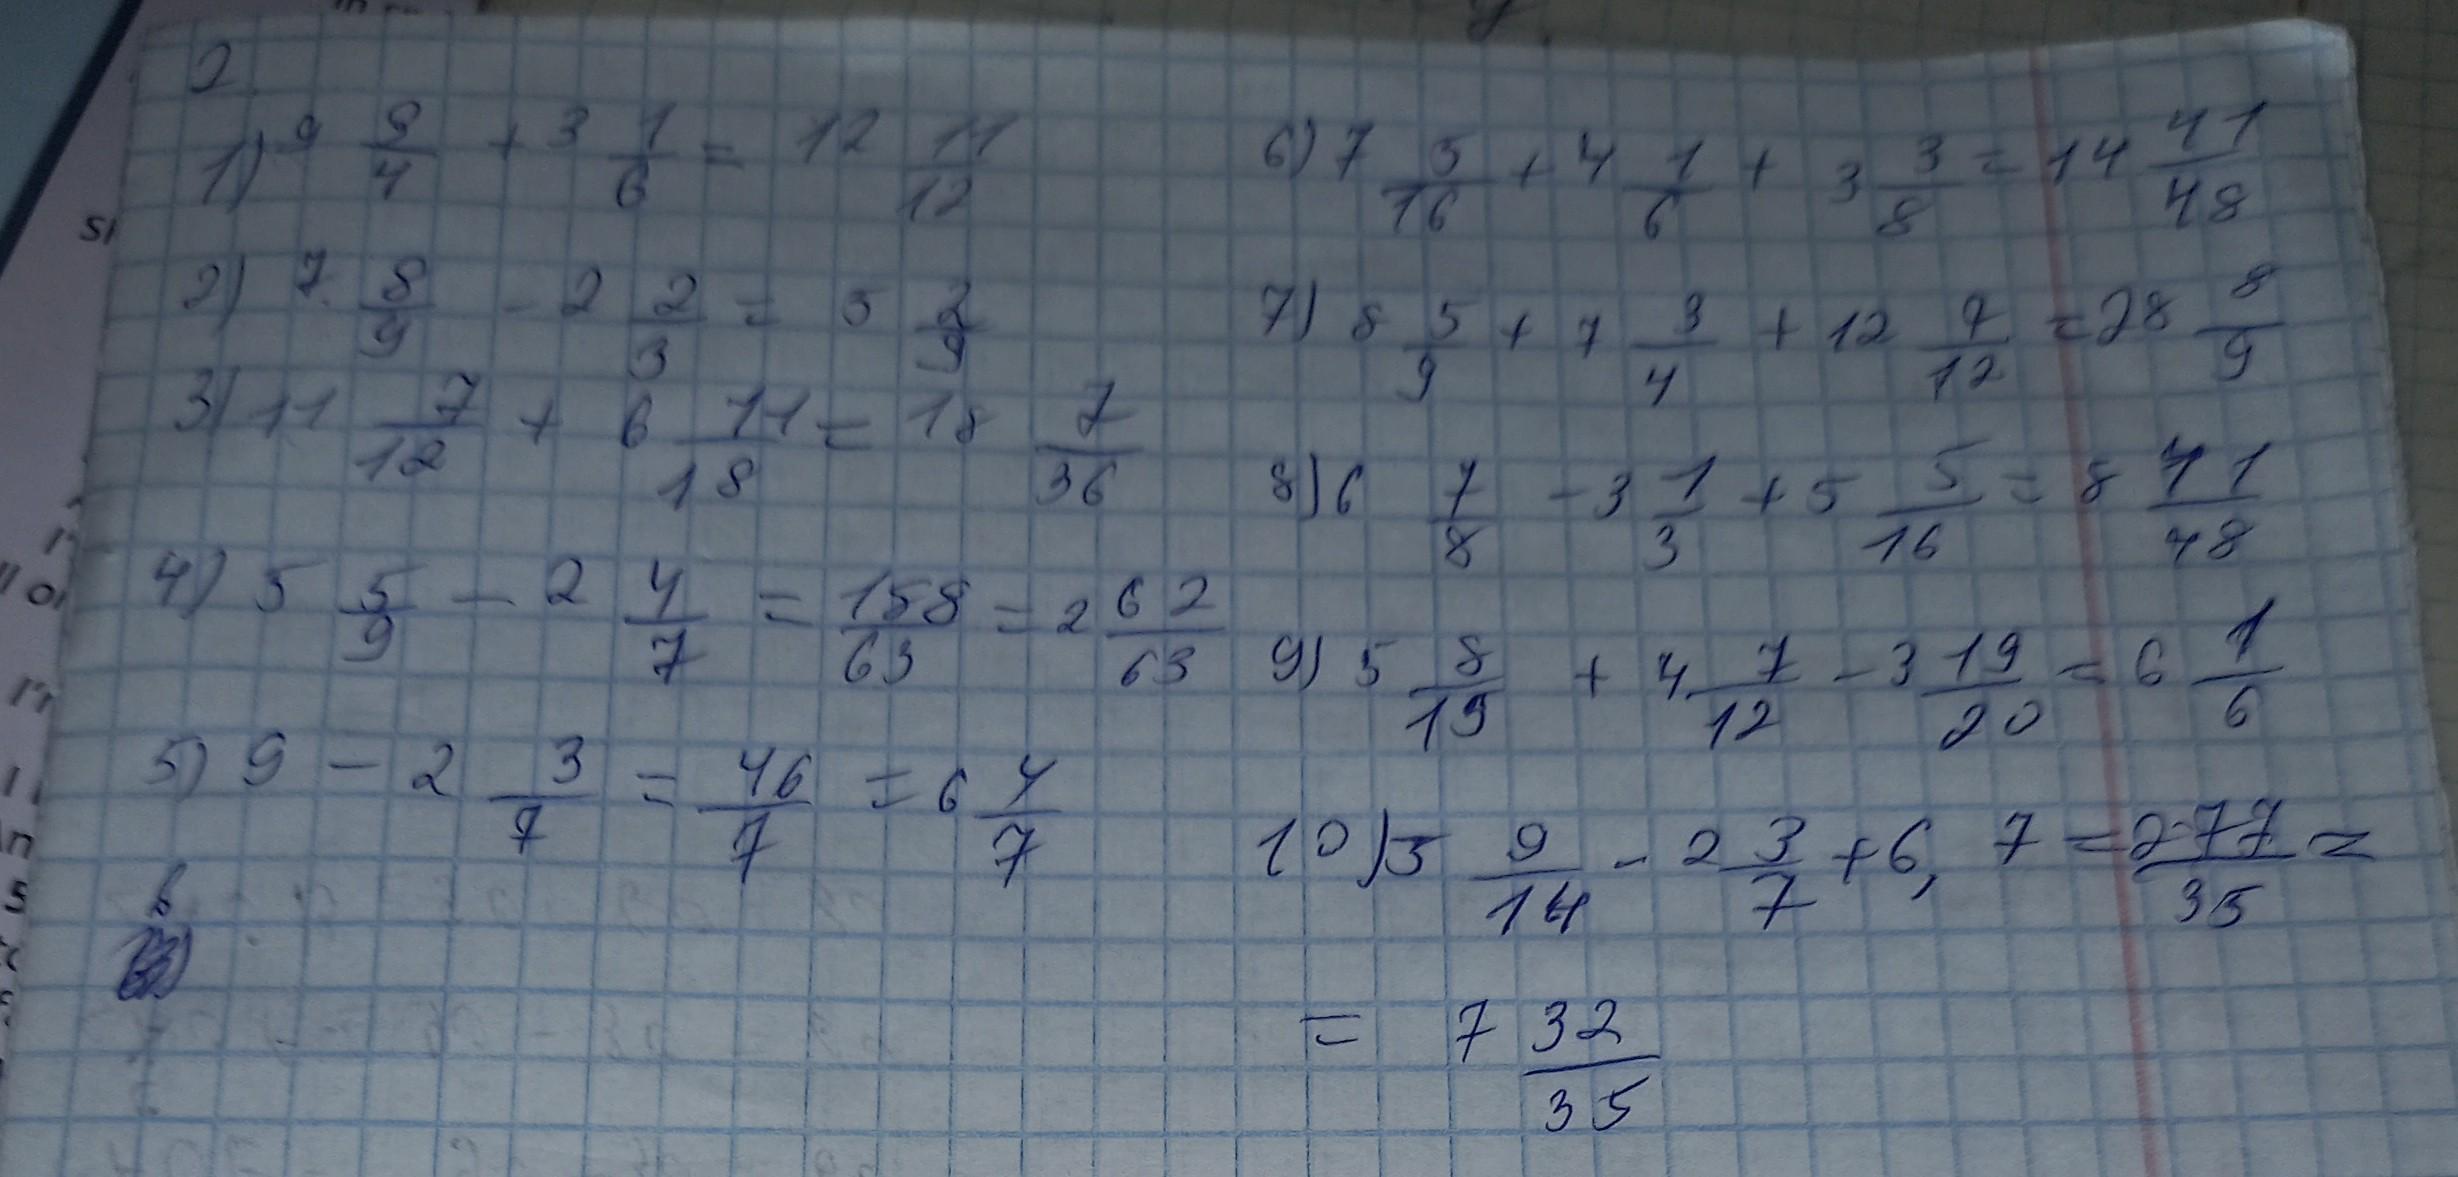 2.
1) 9 9/4 + 3 1/6 = 12 11/12
2) 7 8/9 - 2 2/3 = 5 2/9
3) 11 7/12 + 6 11/18 = 18 7/36
4) 5 5/9 - 2 4/7 = 158/63 = 2 62/63
5) 9 - 2 3/7 = 46/7 = 6 4/7
6) 7 5/16 + 4 1/6 + 3 3/8 = 14 41/48
7) 8 5/9 + 7 3/4 + 12 7/12 = 28 8/9
8) 6 7/8 - 3 1/3 + 5 5/16 = 8 41/48
9) 5 8/15 + 4 7/12 - 3 19/20 = 6 1/6
10) 3 9/14 - 2 3/7 + 6,7 = 277/35 =
= 7 32/35